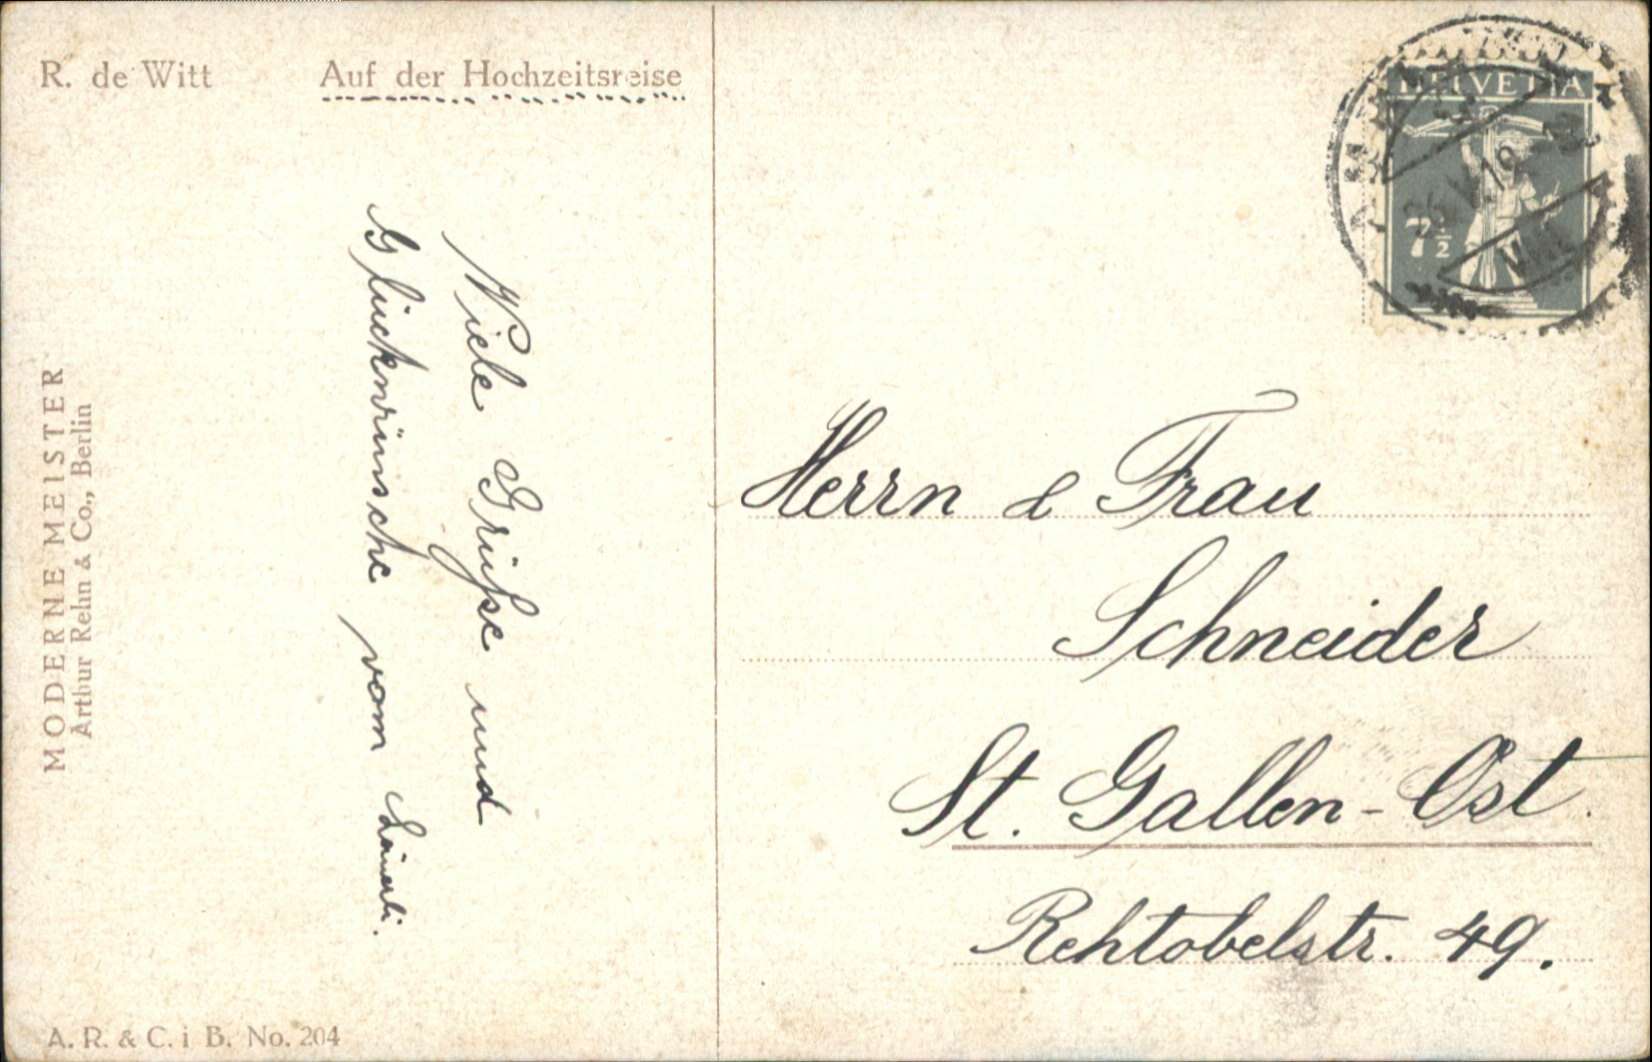 R. de Witt
Auf der Hochzeitsreise
MODERNE MEISTER
Arthur Rehn & Co., Berlin
Viele Grüße und
Glückwünsche vom
A. R. & C. i B. No. 204
HELVETIA
7½
Herrn & Frau
Schneider
St. Gallen-Ost.
Rehtobelstr. 49.